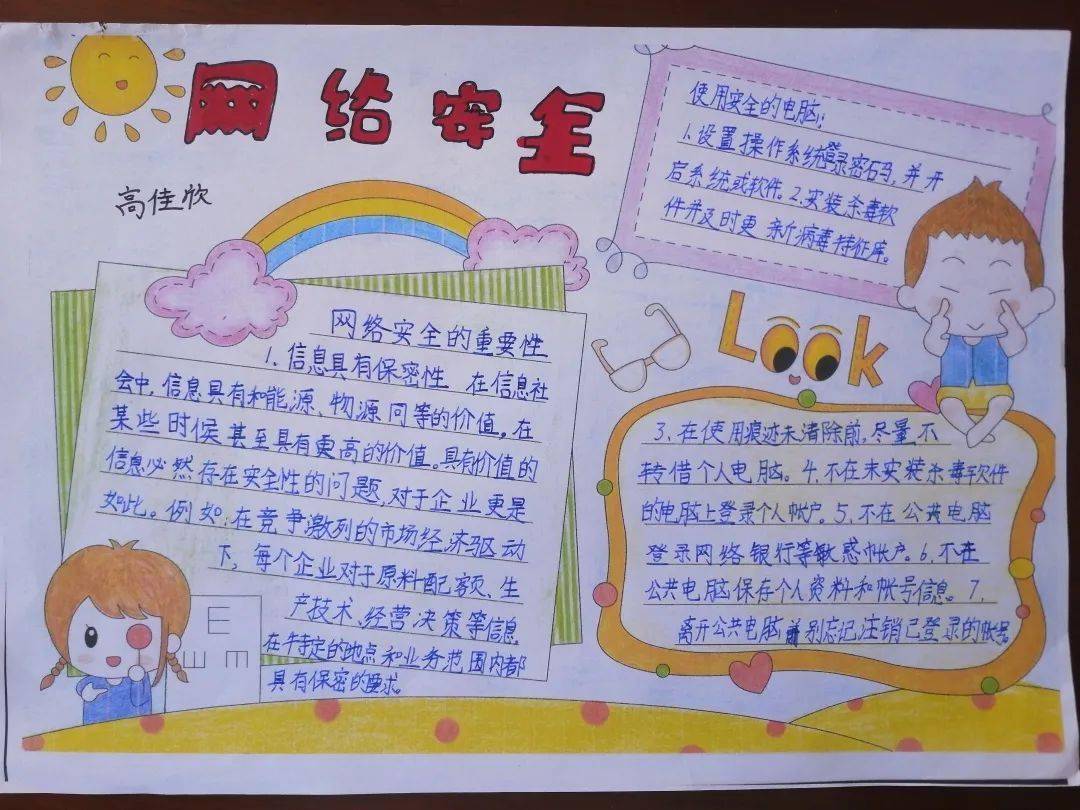 网络安全
高佳欣
使用安全的电脑：
1.设置操作系统登录密码，并开
启系统或软件。2.安装杀毒软
件并及时更新病毒特征库。
Look
网络安全的重要性
1.信息具有保密性 在信息社
会中，信息具有和能源、物源同等的价值。在
某些时候甚至具有更高的价值。具有价值的
信息必然存在安全性的问题，对于企业更是
如此。例如：在竞争激列的市场经济驱动
下，每个企业对于原料配额、生
产技术、经营决策等信息
在特定的地点和业务范围内都
具有保密的要求。
3.在使用痕迹未清除前，尽量不
转借个人电脑。4.不在未安装杀毒软件
的电脑上登录个人帐户。5.不在公共电脑
登录网络银行等敏感帐户。6.不在
公共电脑保存个人资料和帐号信息。7.
离开公共电脑前别忘记注销已登录的帐号
E
E
m